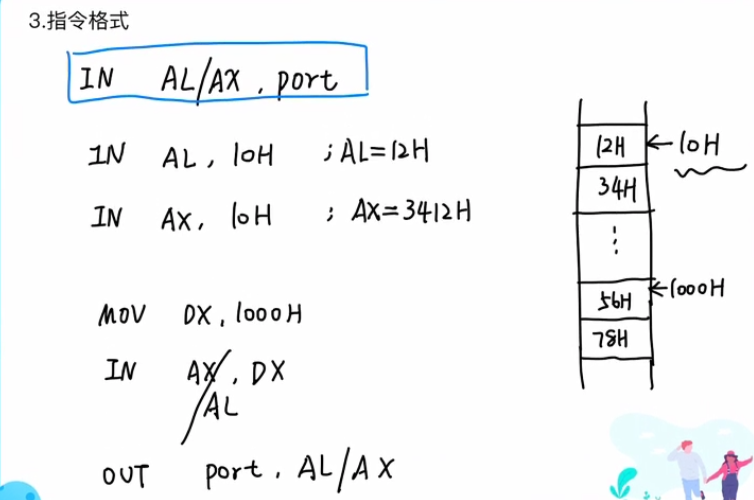 3.指令格式
IN AL/AX , port
IN AL, 10H ;AL=12H
IN AX, 10H ; AX=3412H
MOV DX, 1000H
IN AX/, DX
/AL
OUT port, AL/AX
12H ←10H
34H
⋮
56H ←1000H
78H